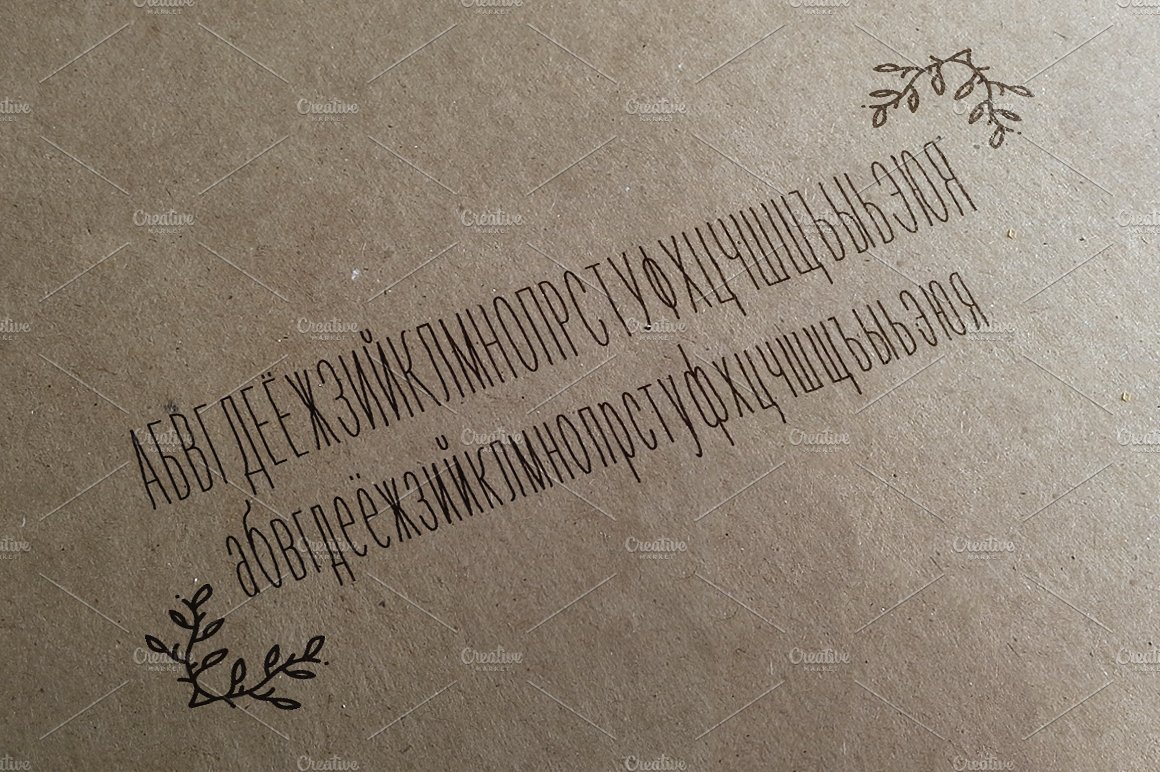 АБВГДЕЁЖЗИЙКЛМНОПРСТУФХЦЧШЩЪЫЬЭЮЯ
абвгдеёжзийклмнопрстуфхцчшщъыьэюя
Creative MARKET